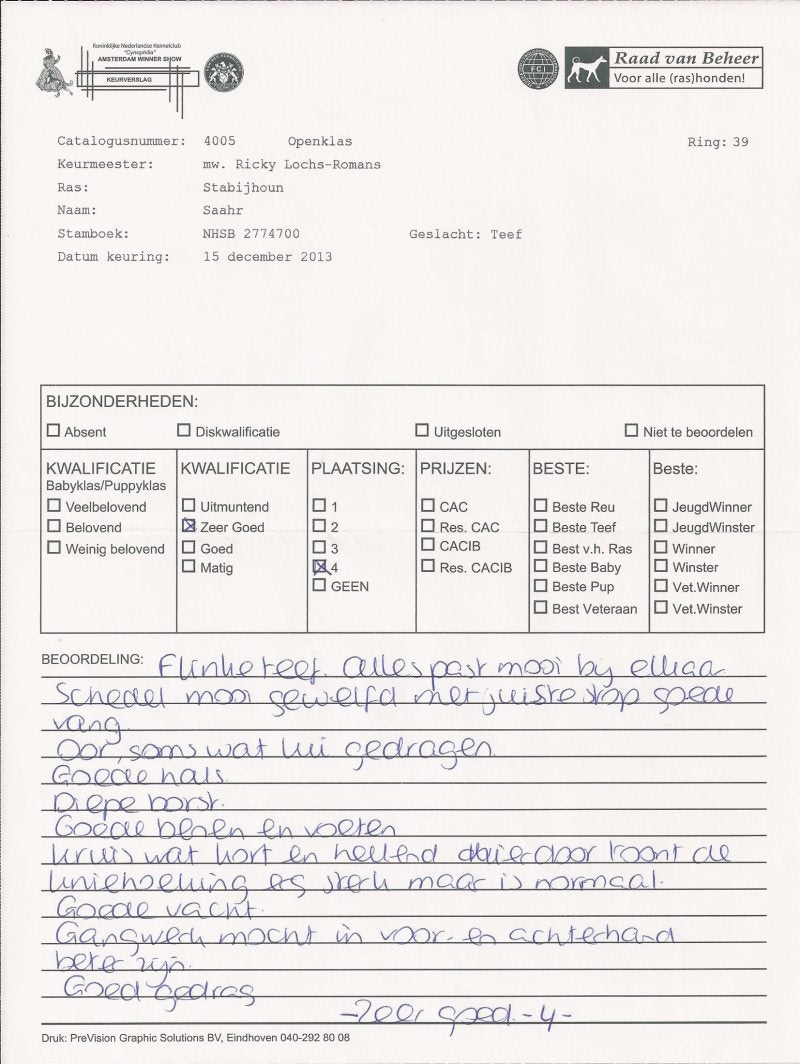 Koninklijke Nederlandse Kennelclub
"Cynophilia"
AMSTERDAM WINNER SHOW
KEURVERSLAG
FCI
Raad van Beheer
Voor alle (ras)honden!
Catalogusnummer: 4005 Openklas Ring: 39
Keurmeester: mw. Ricky Lochs-Romans
Ras: Stabijhoun
Naam: Saahr
Stamboek: NHSB 2774700 Geslacht: Teef
Datum keuring: 15 december 2013
BIJZONDERHEDEN:
Absent Diskwalificatie Uitgesloten Niet te beoordelen
KWALIFICATIE
Babyklas/Puppyklas
Veelbelovend
Belovend
Weinig belovend
KWALIFICATIE
Uitmuntend
Zeer Goed
Goed
Matig
PLAATSING:
1
2
3
4
GEEN
PRIJZEN:
CAC
Res. CAC
CACIB
Res. CACIB
BESTE:
Beste Reu
Beste Teef
Best v.h. Ras
Beste Baby
Beste Pup
Best Veteraan
Beste:
JeugdWinner
JeugdWinster
Winner
Winster
Vet.Winner
Vet.Winster
BEOORDELING: Flinke teef. Alles past mooi by elkaar
Schedel mooi gewelfd met juiste stop goede
vang.
Oor, soms wat lui gedragen.
Goede hals.
Diepe borst.
Goede benen en voeten
Kruis wat kort en hellend daardoor toont de
kniehoeking sterk maar is normaal.
Goede vacht.
Gangwerk mocht in voor- en achterhand
beter zijn.
Goed gedrag
- Zeer goed - 4 -
Druk: PreVision Graphic Solutions BV, Eindhoven 040-292 80 08